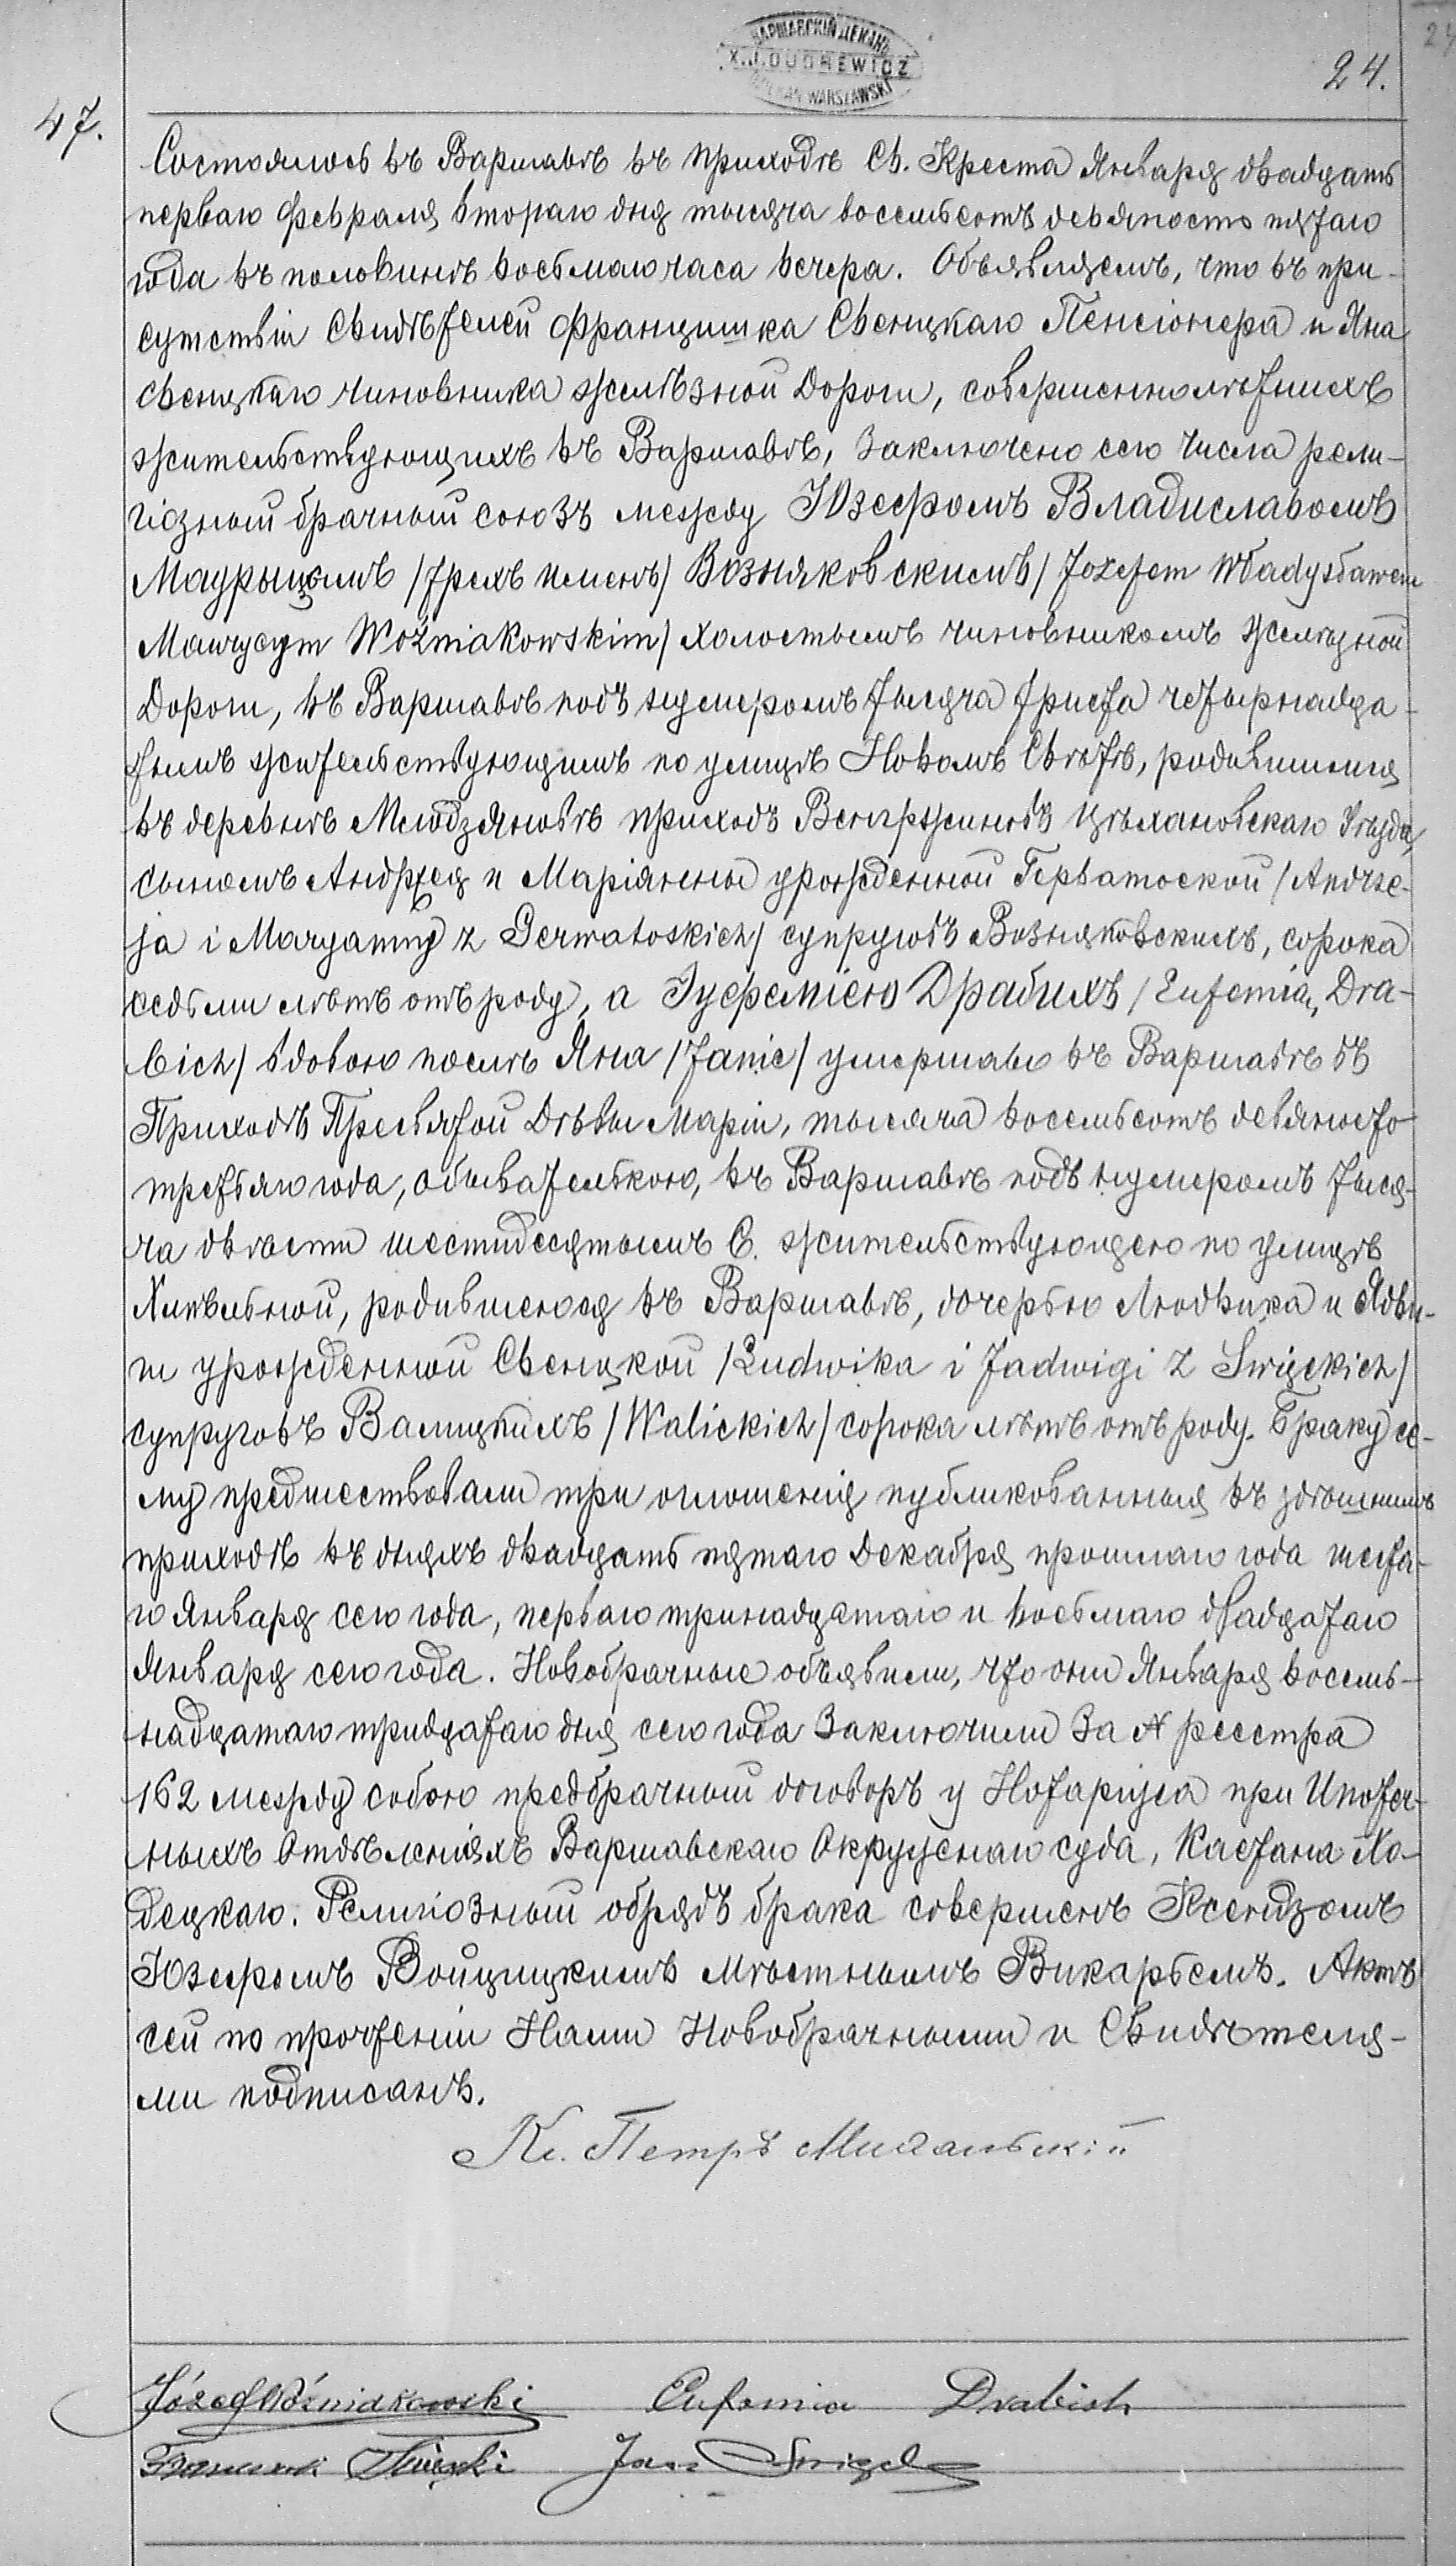 ВАРШАВСКІЙ ДЕКАНЪ
X. J. DUDREWICZ
DZIEKAN WARSZAWSKI
24.
47.
Состоялось въ Варшавѣ въ приходѣ Св. Креста Января двадцать
перваго Февраля втораго дня тысяча восемьсотъ девяносто пятаго
года въ половинѣ восьмаго часа вечера. Объявляемъ, что въ при-
сутствіи свидѣтелей Францишка Свенцкаго Пенсіонера и Яна
Свенцкаго чиновника желѣзной Дороги, совершеннолѣтнихъ
жительствующихъ въ Варшавѣ, заключено сего числа рели-
гіозный брачный союзъ между Юзефомъ Владиславомъ
Маурыцымъ /трехъ именъ/ Возняковскимъ /Jozefem Władysławem
Maurycym Woźniakowskim/ холостымъ чиновникомъ желѣзной
Дороги, въ Варшавѣ подъ нумеромъ тысяча триста четырнадца-
тымъ жительствующимъ по улицѣ Новомъ Свѣтѣ, родившимся
въ деревнѣ Млодзяновѣ приходѣ Венгржиновѣ Цѣхановскаго Уѣзда,
сыномъ Андржея и Маріянны урожденной Герватоской /Andrze-
ja i Maryanny z Gerwatoskich/ супруговъ Возняковскихъ, сорока
седьми лѣтъ отъ роду, а Эуфеміею Драбихъ /Eufemią Dra-
bich/ вдовою послѣ Яна /Janie/ умершаго въ Варшавѣ въ
Приходѣ Пресвятой Дѣвы Маріи, тысяча восемьсотъ девяносто
третьяго года, обывателькою, въ Варшавѣ подъ нумеромъ тыся-
ча двѣсти шестидесятымъ С. жительствующею по улицѣ
Хмѣльной, родившеюся въ Варшавѣ, дочерью Людвика и Ядви-
ги урожденной Свенцкой /Ludwika i Jadwigi z Święckich/
супруговъ Валицкихъ /Walickich/ сорока лѣтъ отъ роду. Браку се-
му предшествовали три оглошенія публикованныя въ здѣшнимъ
приходѣ въ дняхъ двадцать пятаго Декабря прошлаго года шеста-
го Января сего года, перваго тринадцатаго и восьмаго двадцатаго
Января сего года. Новобрачные объявили, что они Января восемь-
надцатаго тридцатаго дня сего года заключили за № реестра
162 между собою предбрачный договоръ у Нотаріуса при Ипотеч-
ныхъ Отдѣленіяхъ Варшавскаго Окружнаго суда, Каетана Хо-
децкаго. Религіозный обрядъ брака совершенъ Ксендзомъ
Юзефомъ Войцицкимъ мѣстнымъ Викарьемъ. Актъ
сей по прочтеніи Нами Новобрачными и Свидѣтеля-
ми подписанъ.
Кс. Петръ
Józef Woźniakowski Eufemia Drabich
Franciszek Święcki Jan Święcki